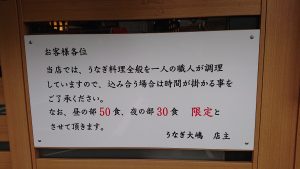 お客様各位
当店では、うなぎ料理全般を一人の職人が調理
していますので、込み合う場合は時間が掛かる事を
ご了承ください。
なお、昼の部50食、夜の部30食　限定と
させて頂きます。
うなぎ大嶋　店主